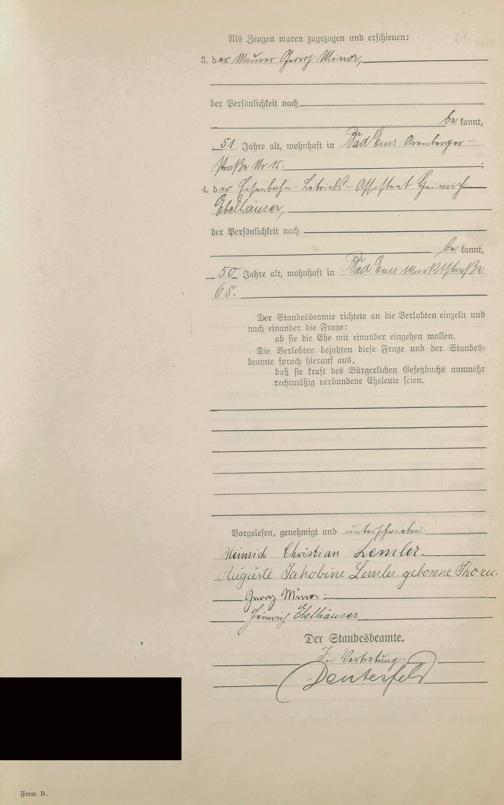 Als Zeugen waren zugezogen und erschienen:
3. der Maurer Georg Minor,
der Persönlichkeit nach
be kannt,
51 Jahre alt, wohnhaft in Bad Ems Arenberger-
straße Nr 15.
4. der Eisenbahn-Betriebs-Assistent Heinrich
Ebelhäuser,
der Persönlichkeit nach
be kannt,
50 Jahre alt, wohnhaft in Bad Ems Marktstraße
68.
Der Standesbeamte richtete an die Verlobten einzeln und
nach einander die Frage:
ob sie die Ehe mit einander eingehen wollen.
Die Verlobten bejahten diese Frage und der Standes-
beamte sprach hierauf aus,
daß sie kraft des Bürgerlichen Gesetzbuchs nunmehr
rechtmäßig verbundene Eheleute seien.
Vorgelesen, genehmigt und unterschrieben
Heinrich Christian Lemler.
Auguste Jakobine Lemler geborene Thorn.
Georg Minor
Heinrich Ebelhäuser
Der Standesbeamte.
In Vertretung.
Form. B.